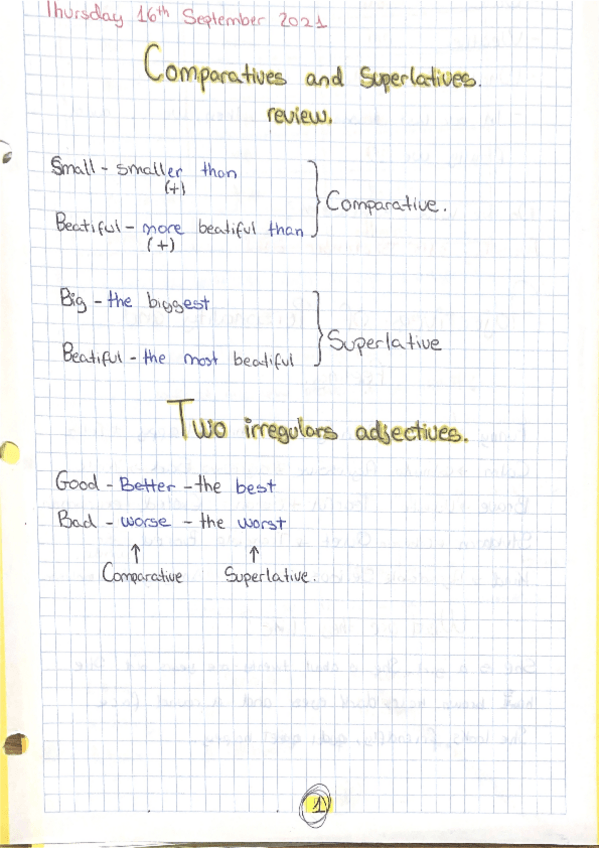 Thursday 16th September 2021
Comparatives and Superlatives.
review.
Small - smaller than
(+)
Comparative.
Beatiful - more beatiful than
(+)
Big - the biggest
Superlative
Beatiful - the most beatiful
Two irregulars adjectives.
Good - Better - the best
Bad - worse - the worst
↑ ↑
Comparative Superlative.
1